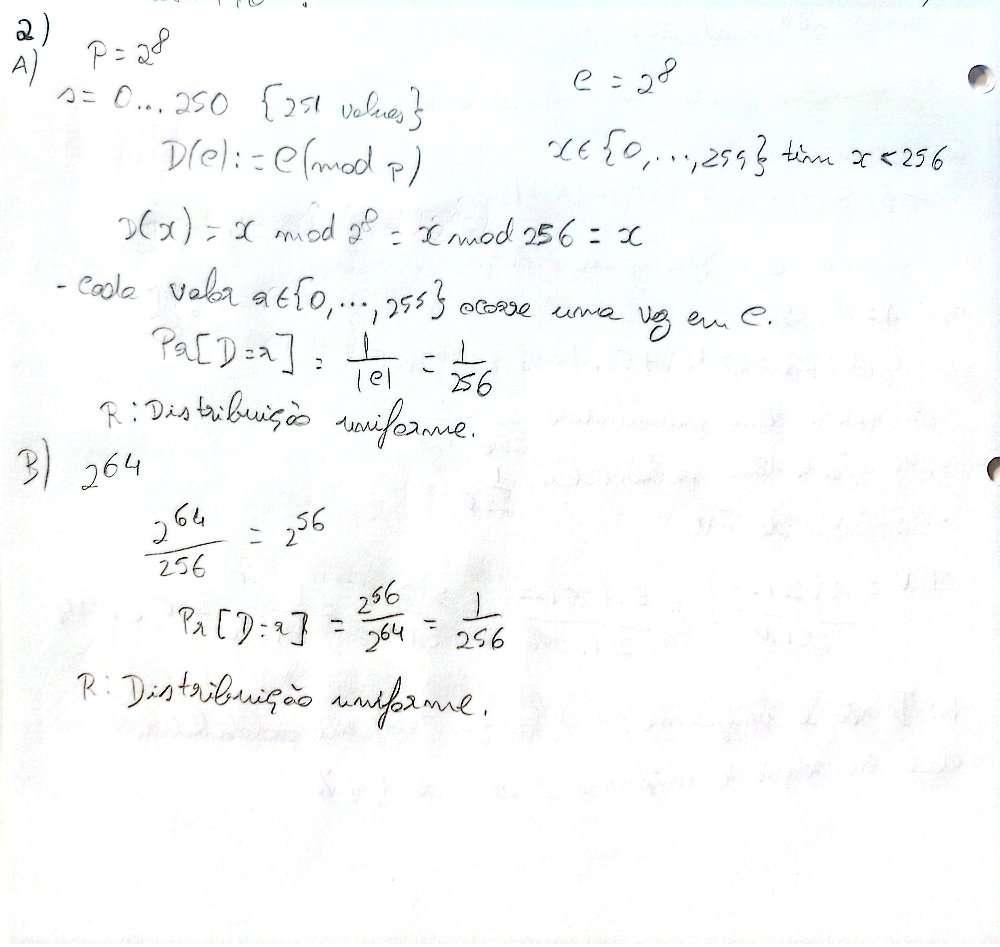 2)
A) P = 2^8
s = 0...250 {251 values}
D(e) := e (mod p)
e = 2^8
x ∈ {0,...,255} tem x < 256
D(x) = x mod 2^8 = x mod 256 = x
- Cada valor r ∈ {0,...,255} ocorre uma vez em e.
Pr[D=r] = 1/|e| = 1/256
R: Distribuição uniforme.
B) 2^64
2^64/256 = 2^56
Pr[D=r] = 2^56/2^64 = 1/256
R: Distribuição uniforme.